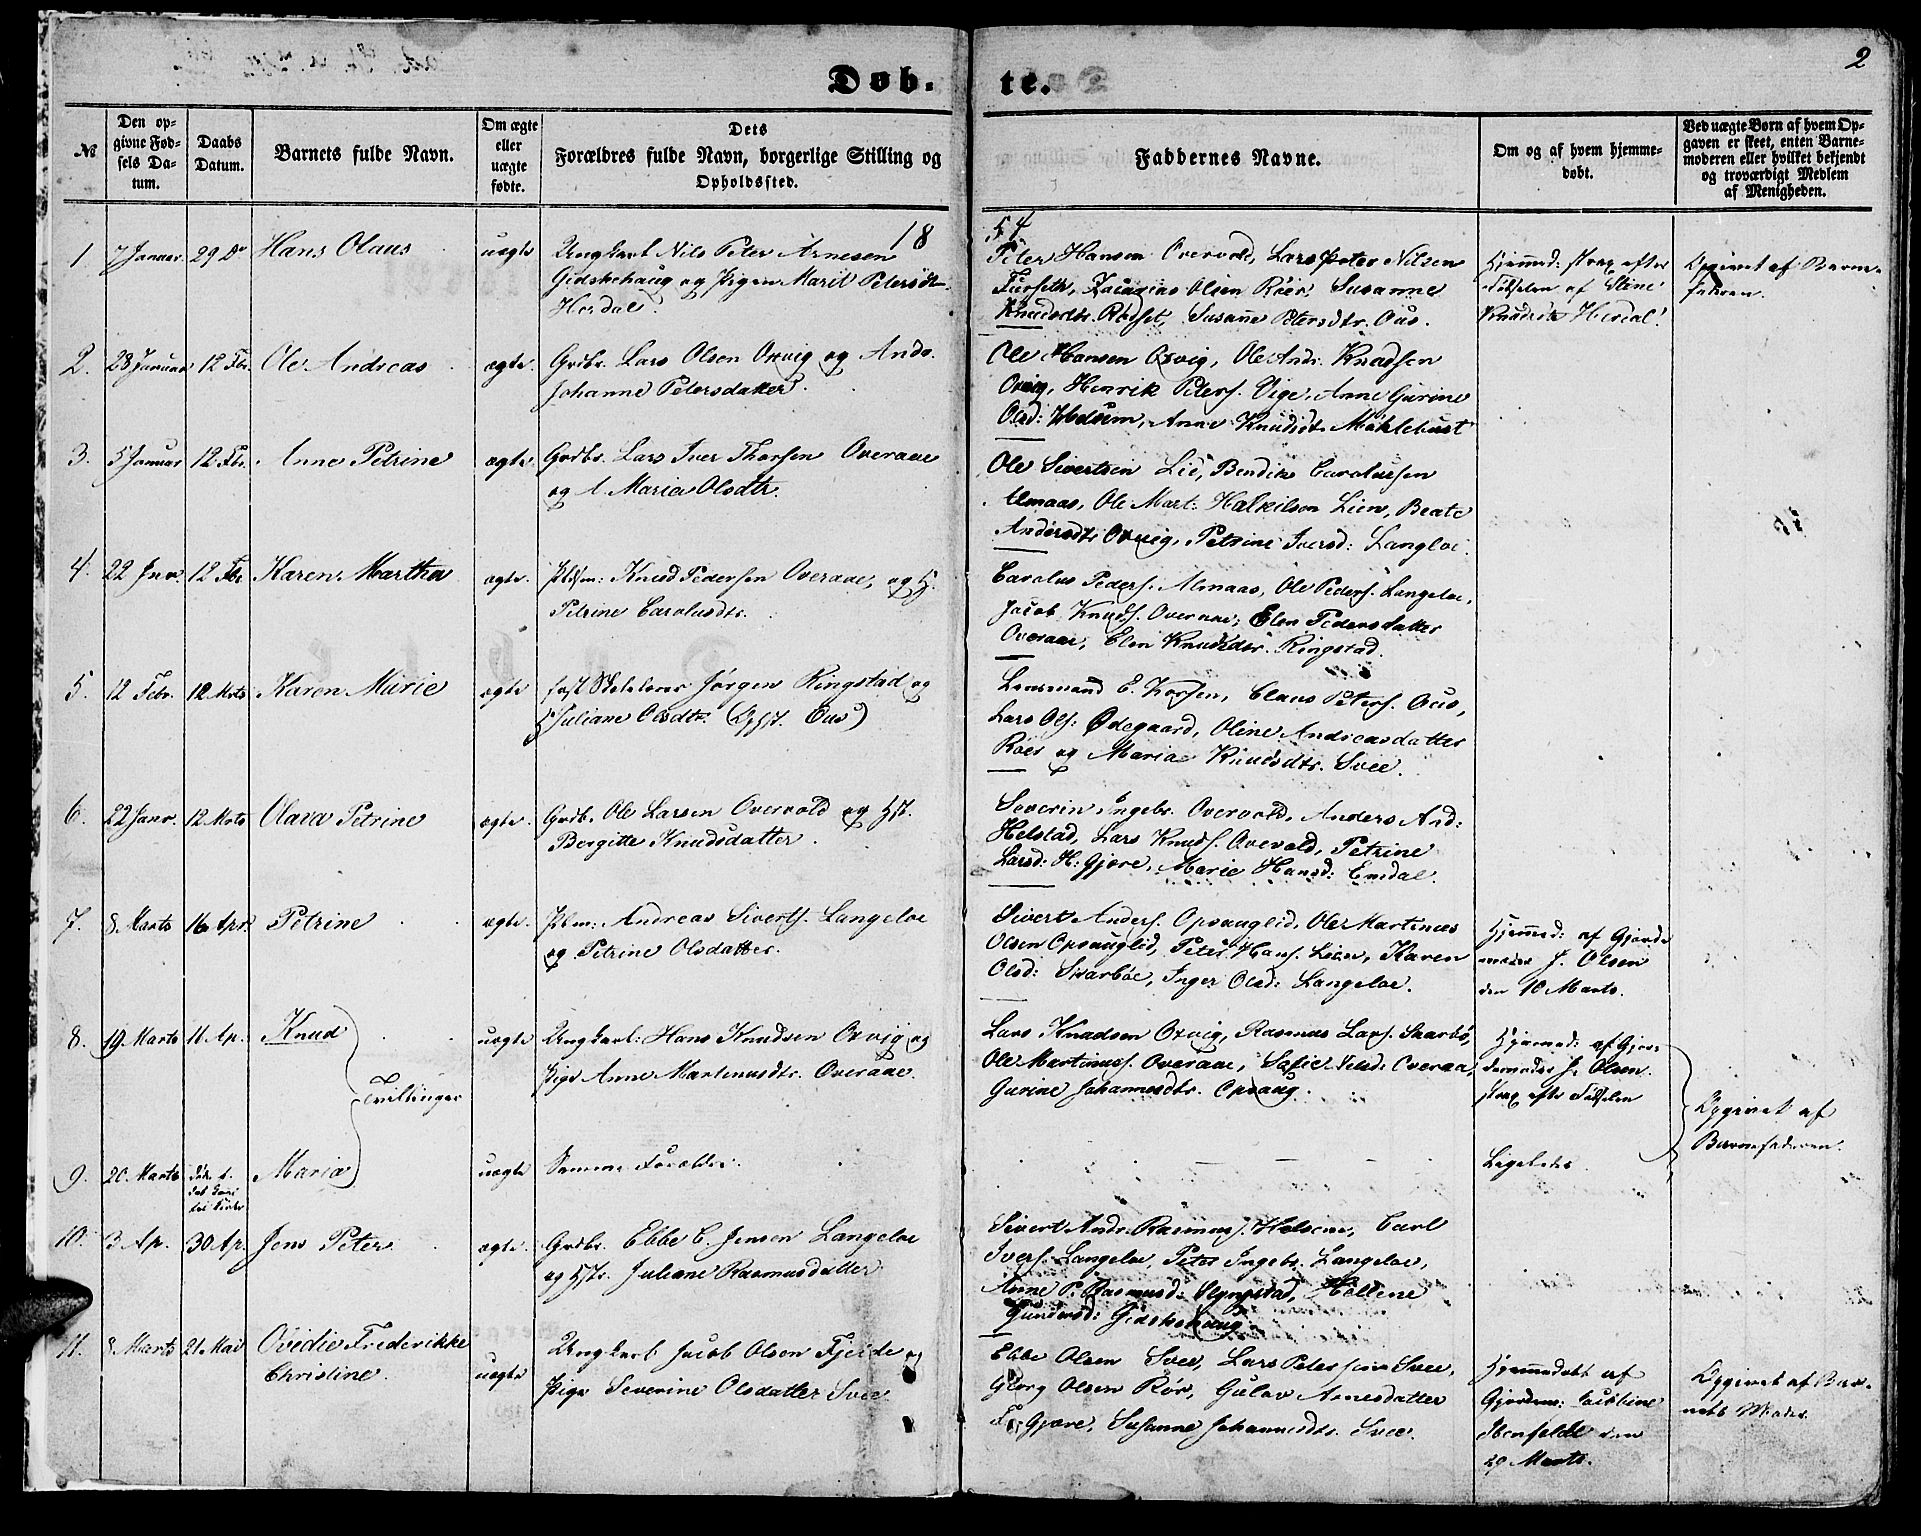 2
Døb-
te.
№
Den op-
givne Fød-
sels Da-
tum.
Daabs
Datum.
Barnets fulde Navn.
Om ægte
eller
uægte
fødte.
Dets
Forældres fulde Navn, borgerlige Stilling og
Opholdssted.
Faddernes Navne.
Om og af hvem hjemme-
døbt.
Ved uægte Børn af hvem Op-
gaven er skeet, enten Barne-
moderen eller hvilket bekjendt
og troværdigt Medlem
af Menigheden.
18 54
1 7 Januar 29 Do Hans Olaus uægte Ungkarl Nils Peter Arnesen
Gidskehaug og Pigen Marit Petersdtr.
Hordal.
Peter Hansen Overvold, Lars Peter Nilsen
Furseth, Zacarias Olsen Röer, Susanne
Knudsdtr. Rödset, Susanne Petersdtr. Ous.
Hjemmed: strax efter
Födselen af Stine
Knudsdtr
Opgivet af Barne-
faderen.
2. 28 Januar 12 Fbr. Ole Andreas ægte. Grdbr. Lars Olsen Orvig og
Johanne Petersdatter.
Ole Hansen Orvig, Ole Andr. Knudsen
Orvig, Henrik Peters. Vige, Anne Gurine
Olsd: Hedsem, Anne Knudsdt. Möklebust
3. 5 Januar 12 Fbr. Anne Petrine ægte Grdbr. Lars Iver Thorsen Overaae
og A. Maria Olsdtr.
Ole Sivertsen Lid, Bendik Carolussen
Almaas, Ole Mart: Halkilsen Lien, Beate
Andersdtr Orvig, Petrine Iversd: Langloe.
4. 22 Jnr. 12 Fbr Karen Martha ægte. Pldsm: Knud Pedersen Overaae, og H.
Petrine Carolusdtr.
Carolus Peders. Almaas, Ole Peders. Langeloe,
Jacob Knuds. Overaae, Elen Pedersdatter
Overaae, Elen Knudsdtr. Ringstad.
5. 12 Febr. 12 Mrts Karen Marie ægte fast Skolelærer Jörgen Ringstad og
H Juliane Olsdtr. (Ophst. Ous)
Lensmand E. Korsen, Claus Peters. Ous,
Lars Ols: Ødegaard, Oline Andreasdatter
Röer og Maria Knudsdtr. Svee.
6. 22 Janr. 12 Mrts Olava Petrine ægte. Grdb. Ole Larsen Overvold og Hst.
Bergitte Knudsdatter.
Severin Ingebr. Overvold, Anders And:
Helstad, Lars Knuds. Overvold, Petrine
Larsd: H: Gjære, Marie Hansd: Emdal.
7. 8. Marts 16 Apr. Petrine ægte. Plsm: Andreas Siverts. Langeloe
og Petrine Olsdatter.
Sivert Anders. Opsauglid, Ole Martinus
Olsen Opsauglid, Peter Hans. Lien, Karen
Olsd: Svarböe, Inger Olsd: Langeloe.
Hjemmed: af Gjorde-
moder J. Olsen
den 10 Marts.
8. 19 Marts 11 Ap. Knud uægte Ungkarl: Hans Knudsen Orvig og
Pige Anne Martinusdtr. Overaae.
Tvillinger
Lars Knudsen Orvig, Rasmus Lars. Skarbö,
Ole Martinuss. Overaae, Sofie Nilsd: Overaa,
Gurine Johannesdtr. Opsaug.
Hjemmed: af Gjor-
demoder J. Olsen
strax efter Födselen
Opgivet af
Barnefaderen.
9. 20 Marts Maria uægte Samme Forældre. Ligeledes
10. 3 Ap. 30 Ap. Jens Peter ægte. Grdbr. Ebbe C. Jensen Langeloe
og Hstr. Juliane Rasmusdatter
Sivert Andr. Rasmus. Helsem, Carl
Ivers. Langeloe, Peter Ingebr. Langeloe,
Anne P. Rasmusd: Slyngstad, Hellene
Gundersd: Gidskehaug.
11. 8 Marts 21 Mai Ovidie Frederikke
Christine.
uægte Ungkarl Jacob Olsen Fjelde og
Pige Severine Olsdatter Svee
Ebbe Olsen Svee, Lars Petersen Svee,
Georg Olsen Rör, Gulov Arnesdatter
Gjære, Susanne Johannesdtr. Svee.
Hjemmedöbt af
Gjordem: Jacobine
den
29 Marts.
Opgivet af Bar-
nets Moder.